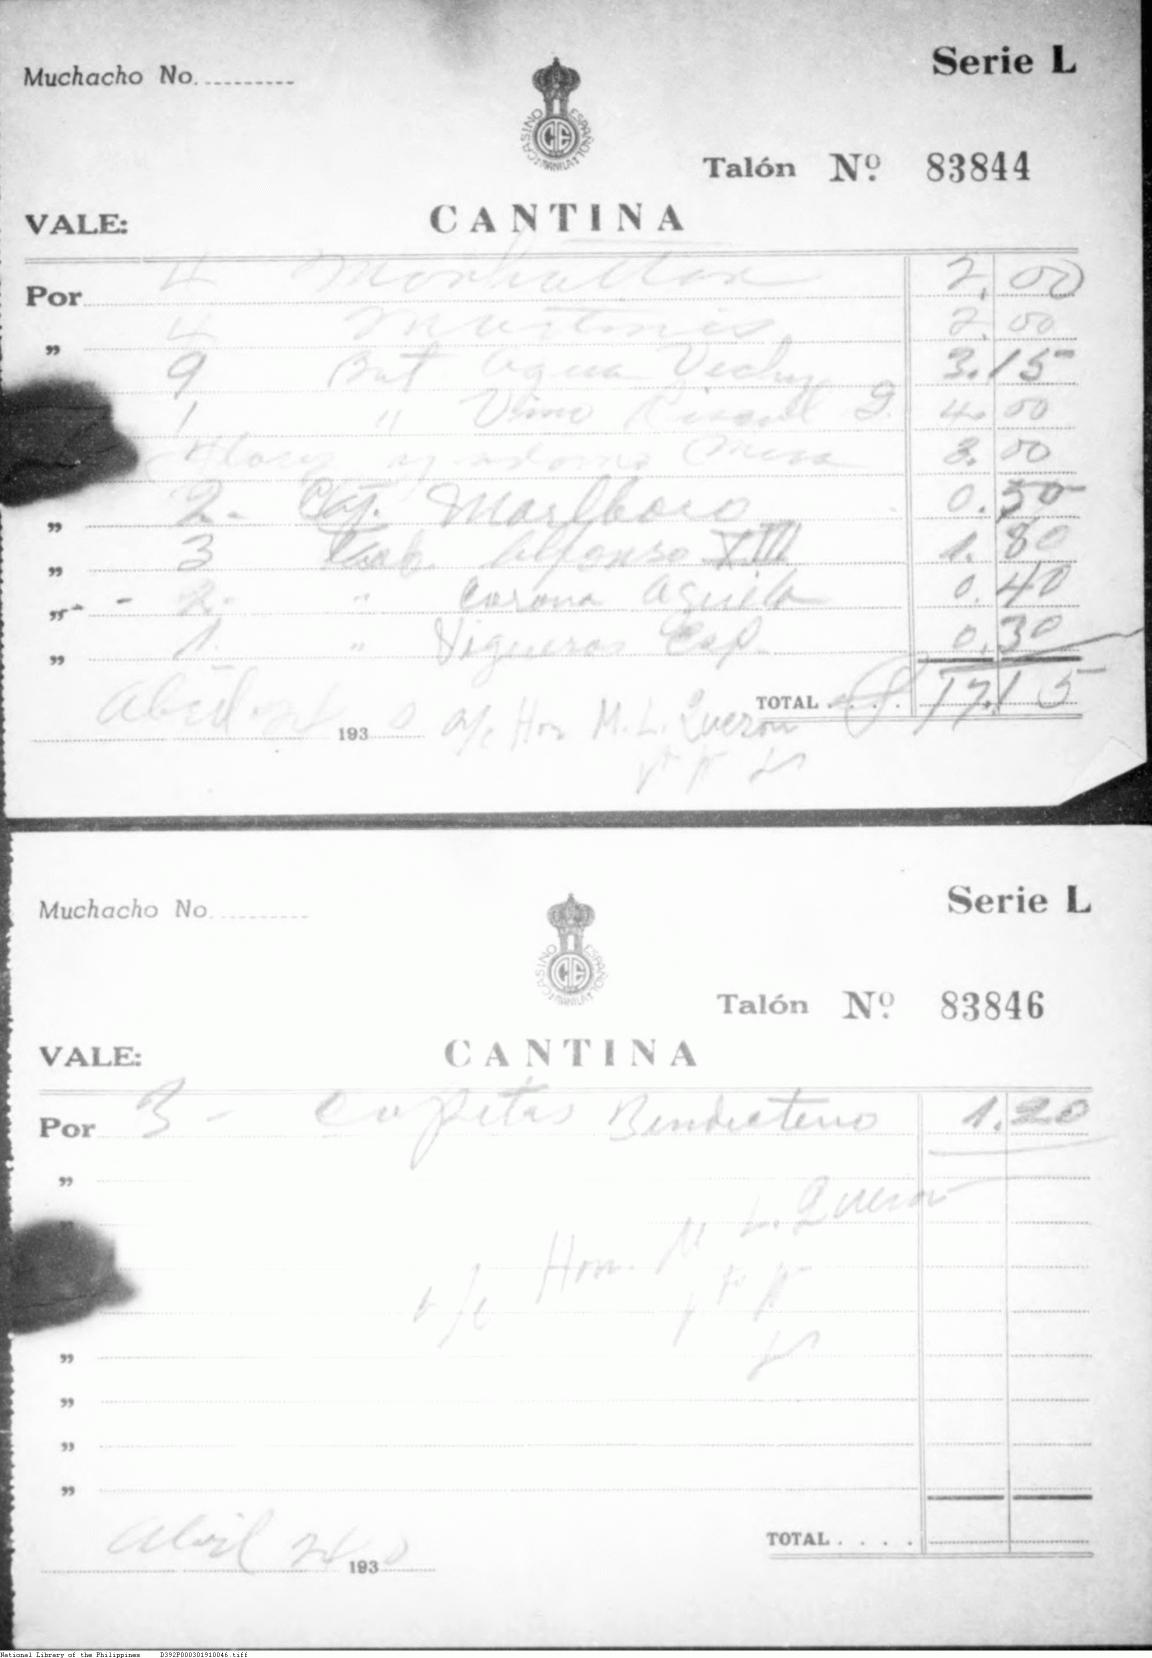 Muchacho No.
Serie L
CASINO ESPAÑOL MANILA
CE
Talón Nº 83844
VALE: CANTINA
Por 4 Manhattan 2.00
" 4 Martinis 2.00
9 Bot Agua Vichy 3.15
1 " Vino 4.00
Flores y adorno Mesa 3.00
" 2- Caj. Marlboro 0.50
" 3 Tab. Alfonso XIII 1.80
" - 2- " Corona Aguila 0.40
" 1. " Vigueros Esp. 0.30
TOTAL .... 17.15
Abril 24 1930 a/c Hon M. L. Quezon
Muchacho No.
Serie L
CASINO ESPAÑOL MANILA
CE
Talón Nº 83846
VALE: CANTINA
Por 3 - Copitas Bendictino 1.20
"
a/c Hon. M. L. Quezon
"
"
"
"
TOTAL ....
Abril 24 1930
National Library of the Philippines D392P000301910046.tiff